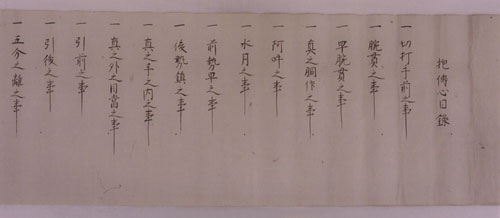 抱傳心目錄
一切打手前之事
一腕貫之事
一早腕貫之事
一真之胴作之事
一阿吽之事
一水月之事
一前勢早之事
一後勢鎮之事
一真之手之内之事
一真之外之目當之事
一引前之事
一引後之事
一五分之離之事